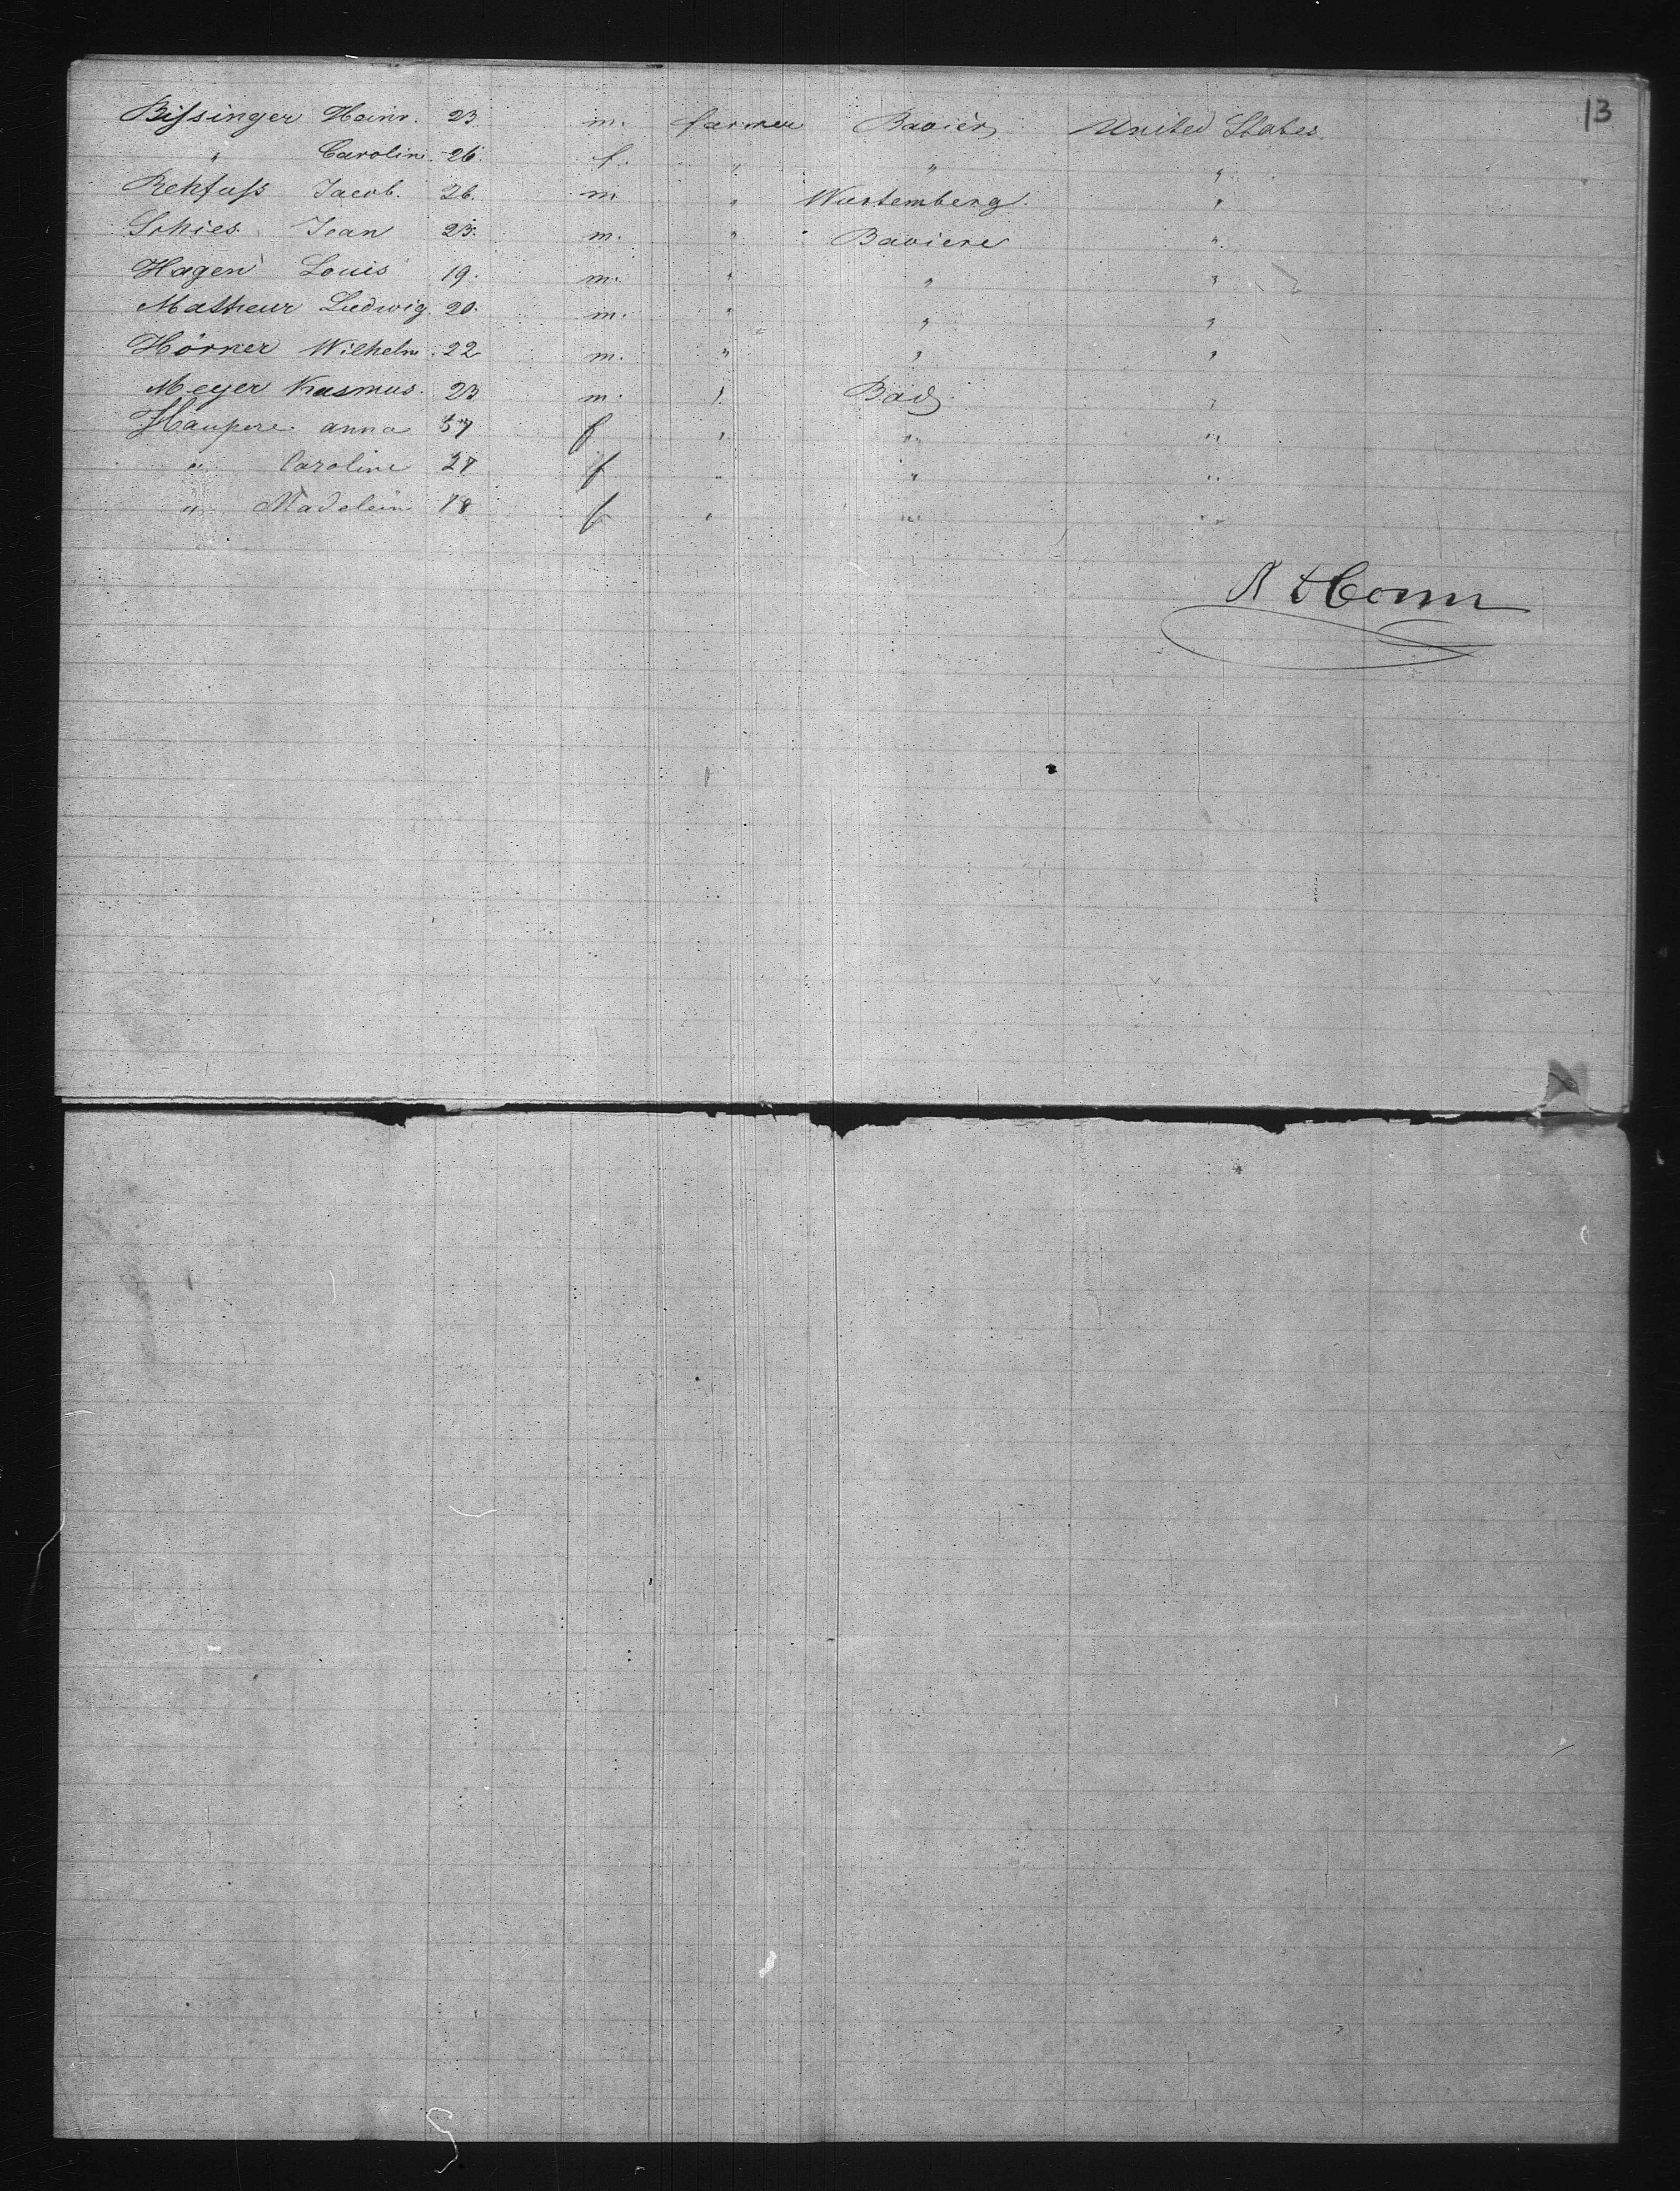 13
Bissinger Heinr. 23 m. farmer Bavière United States
" Carolin. 26. f. " " "
Rehfuss Jacob. 26. m. " Wurtemberg. "
Schies. Jean 23. m. " Baviere "
Hagen Louis 19. m. " " "
Matheur Ludwig. 20. m. " " "
Hörner Wilhelm. 22 m. " " "
Meyer 23 m. " Bade "
Haupere anna 57 f " " "
" Caroline 27 f " " "
" Madelein 18 f " " "